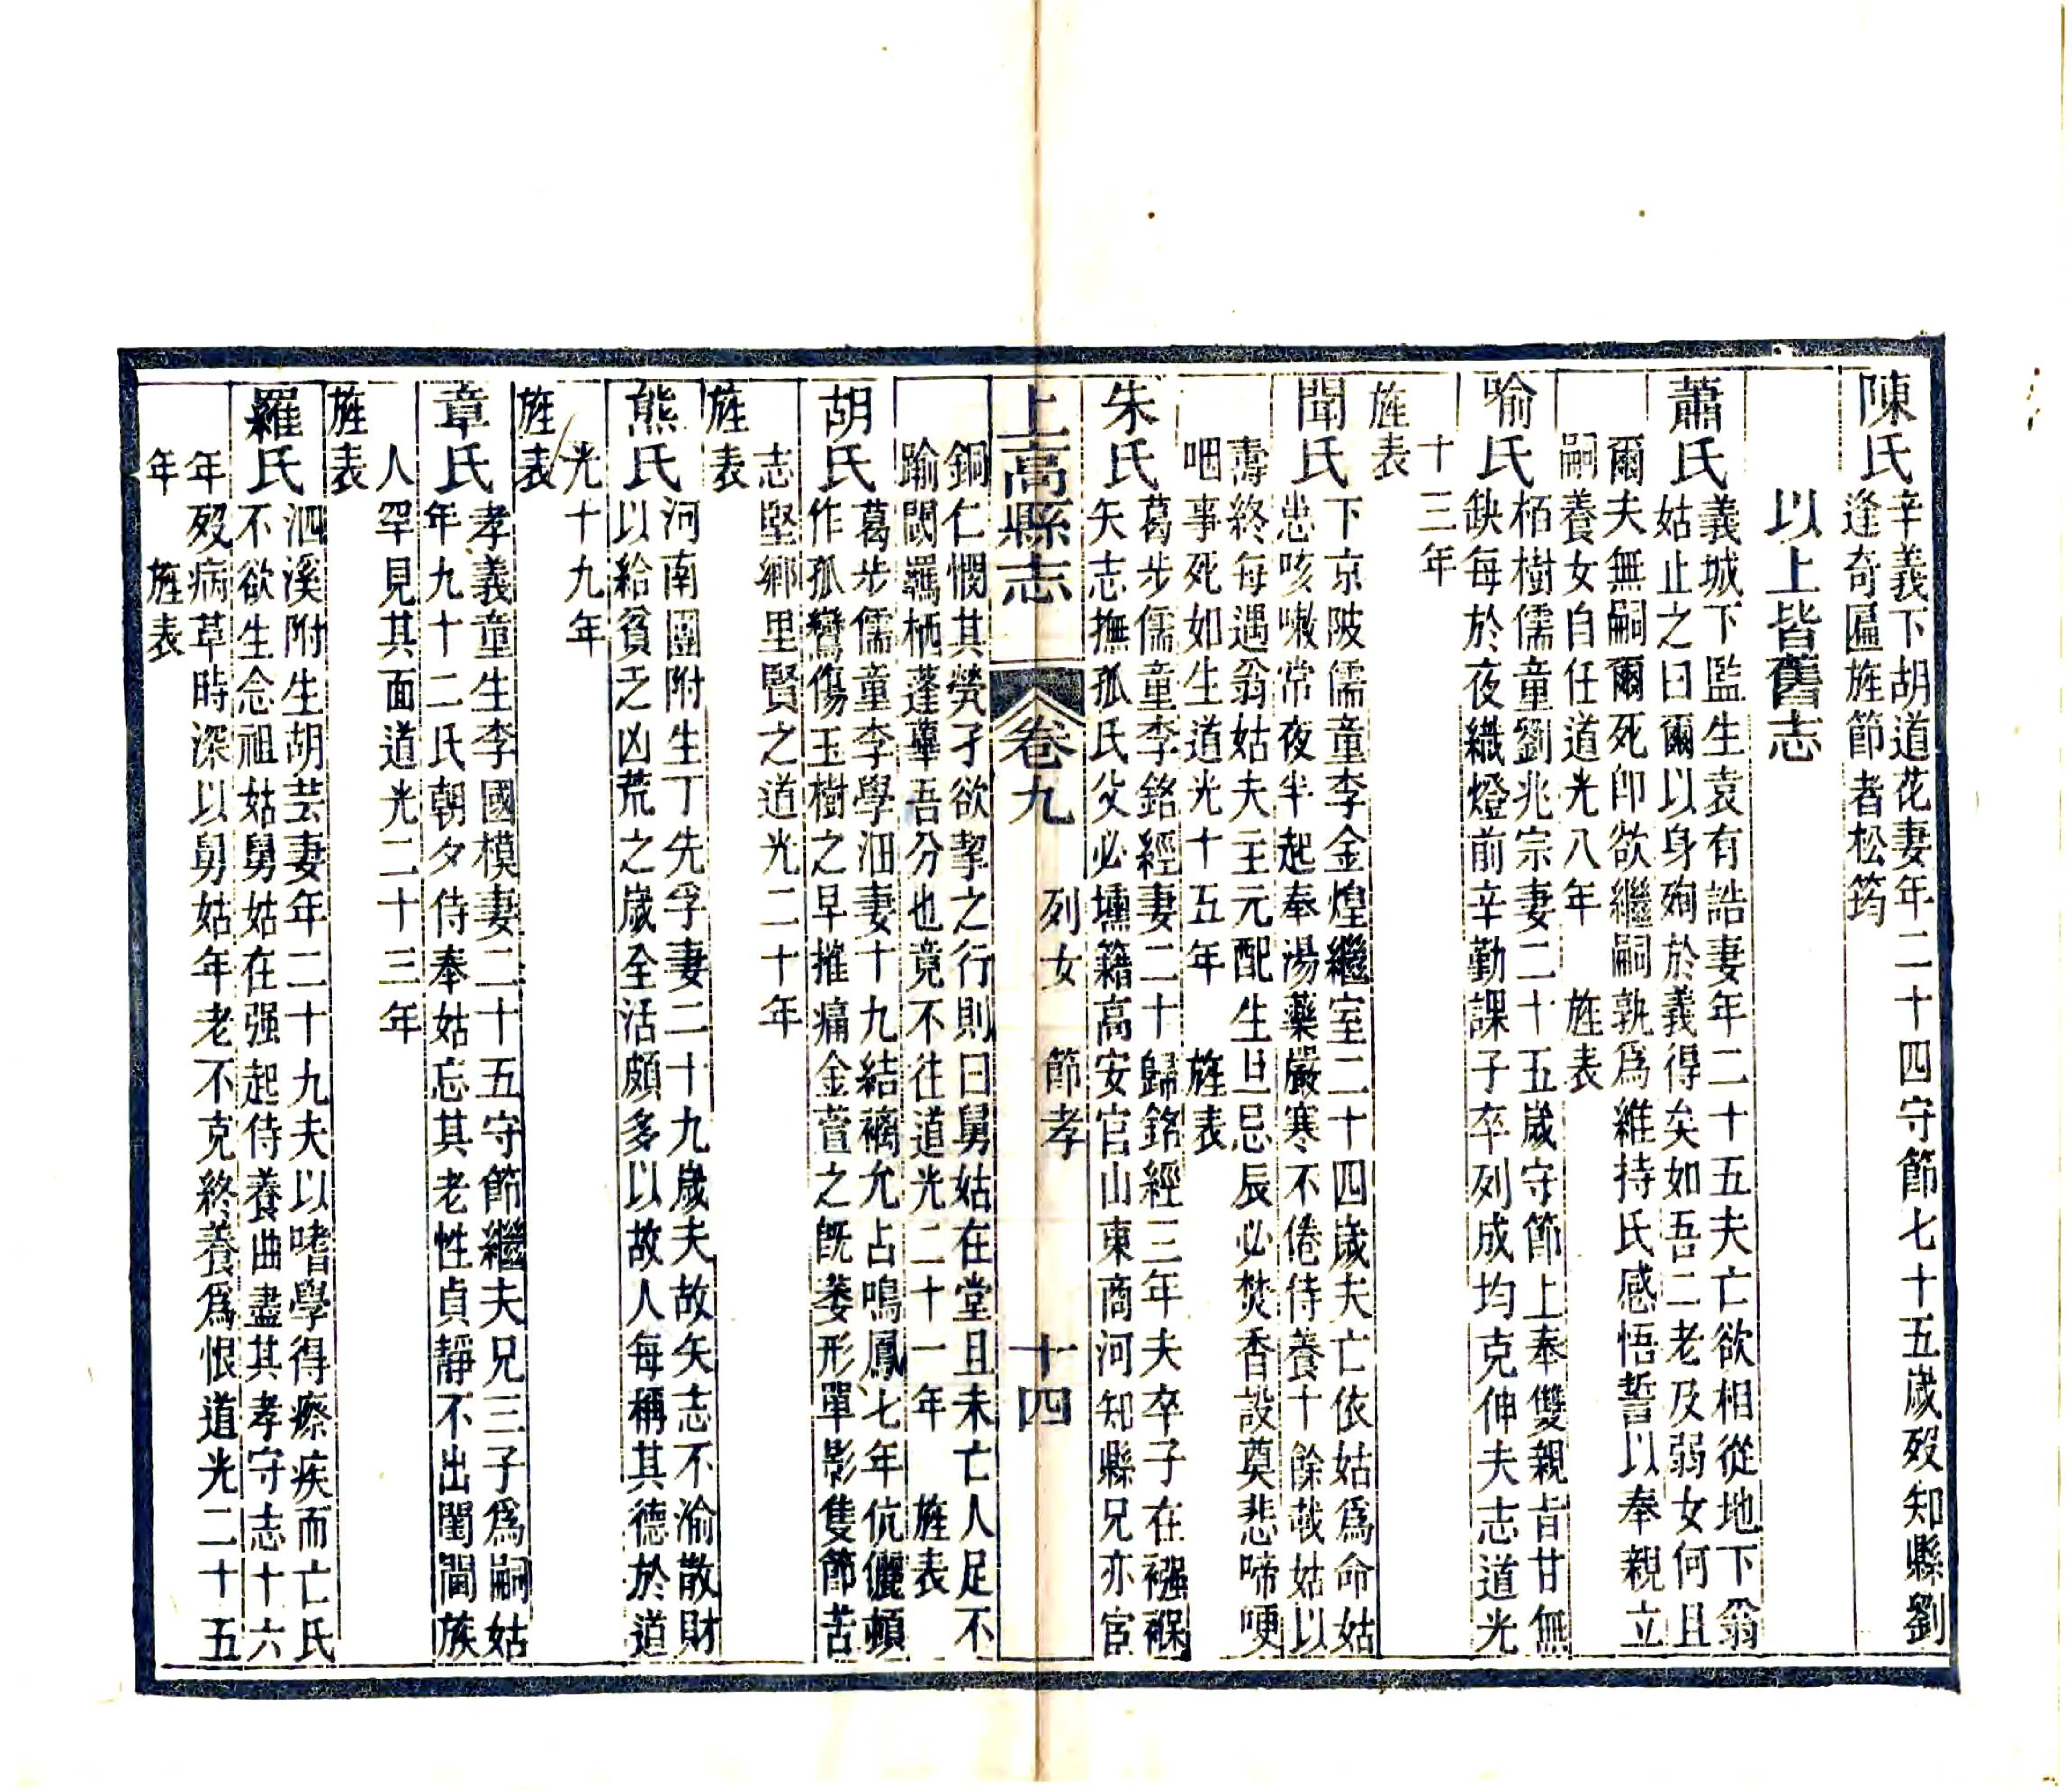 陳氏
辛義下胡道花妻年二十四守節七十五歲歿知縣劉
逢奇匾旌節者松筠
以上皆舊志
蕭氏
義城下監生袁有誥妻年二十五夫亡欲相從地下翁
姑止之曰爾以身殉於義得矣如吾二老及弱女何且
爾夫無嗣爾死卽欲繼嗣孰爲維持氏感悟誓以奉親立
嗣養女自任道光八年 旌表
喻氏
栢樹儒童劉兆宗妻二十五歲守節上奉雙親旨甘無
缺每於夜織燈前辛勤課子卒列成均克伸夫志道光
十三年
旌表
聞氏
下京陂儒童李金煌繼室二十四歲夫亡依姑爲命姑
患咳嗽常夜半起奉湯藥嚴寒不倦侍養十餘載姑以
壽終每遇翁姑夫主元配生旦忌辰必焚香設奠悲啼哽
咽事死如生道光十五年 旌表
朱氏
葛步儒童李銘經妻二十歸銘經三年夫卒子在襁褓
矢志撫孤氏父必壎籍高安官山東商河知縣兄亦宦
上高縣志 卷九 列女 節孝 十四
銅仁憫其煢孑欲挈之行則曰舅姑在堂且未亡人足不
踰閾羈栖蓬蓽吾分也竟不往道光二十一年 旌表
胡氏
葛步儒童李學沺妻十九結褵允占鳴鳳七年伉儷頓
作孤鸞傷玉樹之早摧痛金萱之旣萎形單影隻節苦
志堅鄉里賢之道光二十年
旌表
熊氏
河南團附生丁先孚妻二十九歲夫故矢志不渝散財
以給貧乏凶荒之歲全活頗多以故人每稱其德於道
光十九年
旌表
章氏
孝義童生李國模妻二十五守節繼夫兄三子爲嗣姑
年九十二氏朝夕侍奉姑忘其老性貞靜不出閨閫族
人罕見其面道光二十三年
旌表
羅氏
泗溪附生胡芸妻年二十九夫以嗜學得瘵疾而亡氏
不欲生念祖姑舅姑在强起侍養曲盡其孝守志十六
年歿病革時深以舅姑年老不克終養爲恨道光二十五
年 旌表